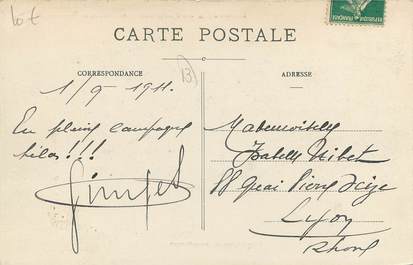 Lot
RÉPUBLIQUE FRANÇAISE
CARTE POSTALE
CORRESPONDANCE
13
ADRESSE
1/9 1911.
En pleine campagne
hélas!!!
Mademoiselle
Isabelle Nibet
88 Quai Pierre Scize
Lyon
Rhône